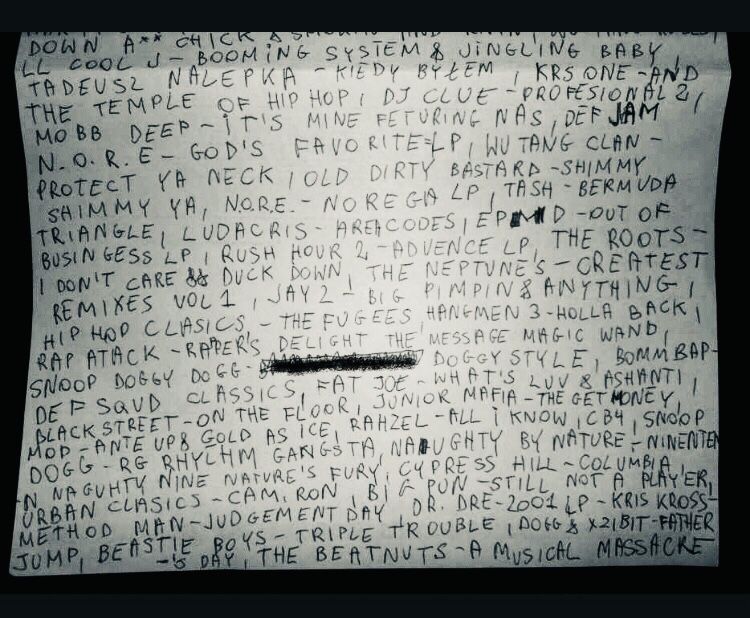 DOWN A** CHICK & SMOKIN AND
LL COOL J - BOOMING SYSTEM & JINGLING BABY,
TADEUSZ NALEPKA - KIEDY BYŁEM, KRS ONE - AND
THE TEMPLE OF HIP HOP, DJ CLUE - PROFESIONAL 2,
MOBB DEEP - IT'S MINE FETURING NAS, DEF JAM,
N.O.R.E - GOD'S FAVORITE LP, WU TANG CLAN -
PROTECT YA NECK, OLD DIRTY BASTARD - SHIMMY
SHIMMY YA, N.O.R.E. - NOREGA LP, TASH - BERMUDA
TRIANGLE, LUDACRIS - AREACODES, EPMD - OUT OF
BUSINGESS LP, RUSH HOUR 2 - ADVENCE LP, THE ROOTS -
I DON'T CARE & DUCK DOWN, THE NEPTUNE'S - GREATEST
REMIXES VOL 1, JAY Z - BIG PIMPIN & ANYTHING,
HIP HOP CLASICS - THE FUGEES, HANGMEN 3 - HOLLA BACK,
RAP ATACK - RAPER'S DELIGHT THE MESSAGE MAGIC WAND,
SNOOP DOGGY DOGG - DOGGY STYLE, BOMM BAP -
DEF SQUD CLASSICS, FAT JOE - WHAT'S LUV & ASHANTI,
BLACK STREET - ON THE FLOOR, JUNIOR MAFIA - THE GET MONEY,
MOP - ANTE UP & GOLD AS ICE, RAHZEL - ALL I KNOW, CB4, SNOOP
DOGG - RG RHYTHM GANGSTA, NAUGHTY BY NATURE - NINENTEN
-N NAGUHTY NINE NATURE'S FURY, CYPRESS HILL - COLUMBIA,
URBAN CLASICS - CAM,RON, BIG PUN - STILL NOT A PLAYER,
METHOD MAN - JUDGEMENT DAY, DR. DRE - 2001 LP - KRIS KROSS -
JUMP, BEASTIE BOYS - TRIPLE TROUBLE, DOGG & XZIBIT - FATHER
-'S DAY, THE BEATNUTS - A MUSICAL MASSACRE